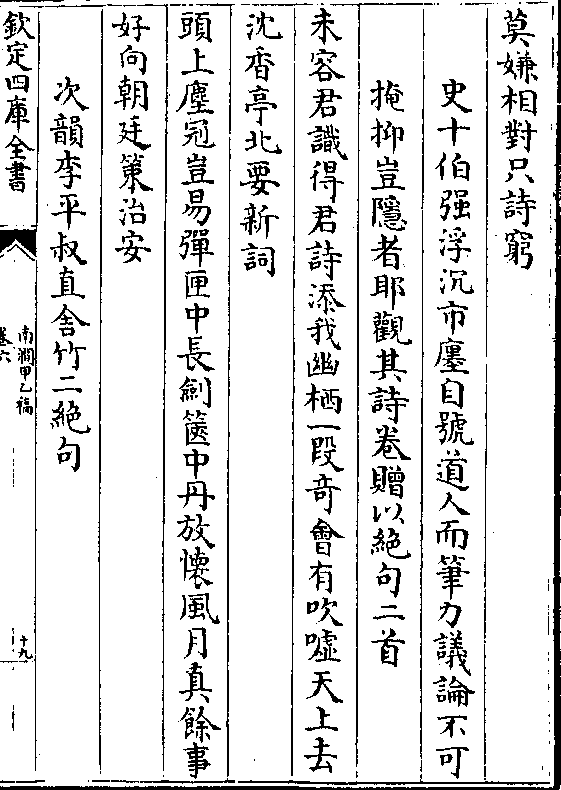 莫嫌相對只詩窮
史十伯强浮沉市廛自號道人而筆力議論不可
掩抑豈隱者耶觀其詩卷贈以絶句二首
未容君識得君詩添我幽栖一段竒會有吹嘘天上去
沈香亭北要新詞
頭上塵冠豈易彈匣中長劍篋中丹放懷風月真餘事
好向朝廷策治安
次韻李平叔直舍竹二絶句
欽定四庫全書
南澗甲乙稿
卷六
十九